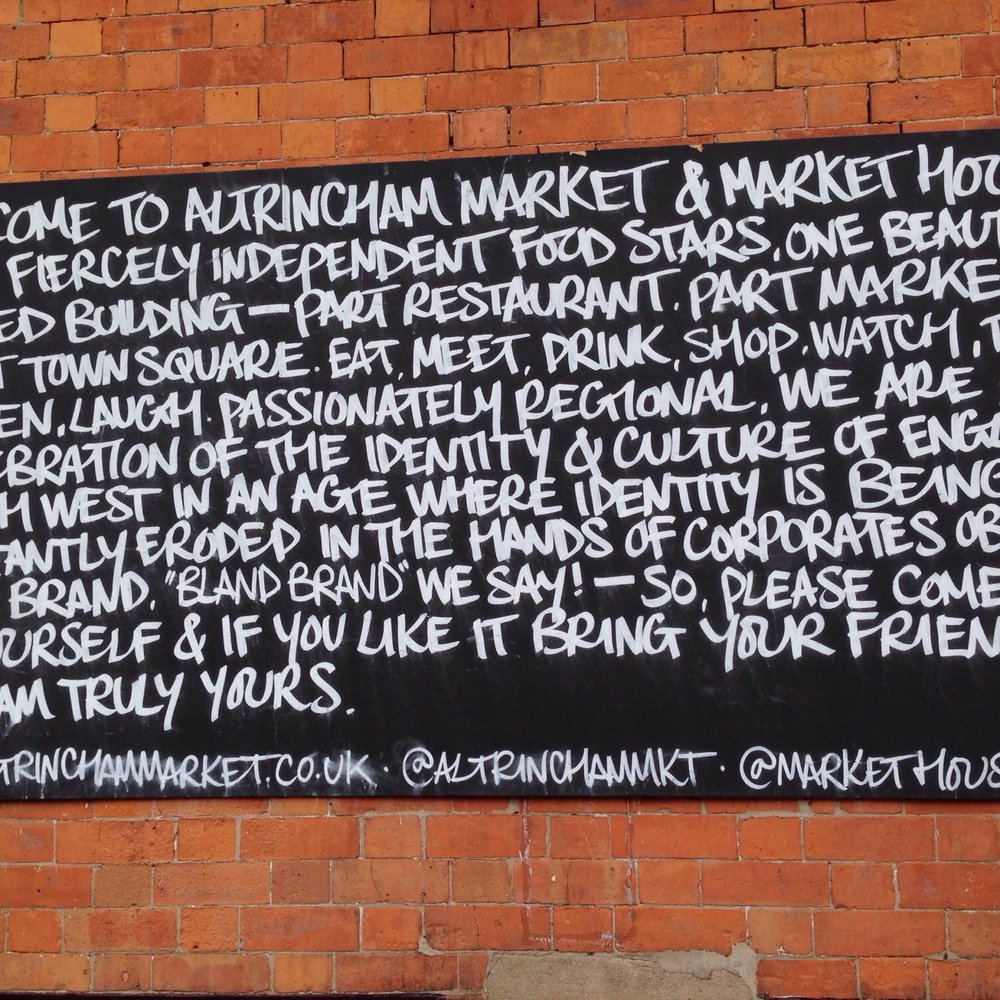 COME TO ALTRINCHAM MARKET & MARKET HOU
FIERCELY INDEPENDENT FOOD STARS. ONE BEAUT
ED BUILDING – PART RESTAURANT. PART MARKE
T TOWN SQUARE. EAT, MEET, DRINK, SHOP. WATCH, T
EN. LAUGH. PASSIONATELY REGIONAL. WE ARE
EBRATION OF THE IDENTITY & CULTURE OF ENGL
H WEST IN AN AGE WHERE IDENTITY IS BEING
TANTLY ERODED IN THE HANDS OF CORPORATES OB
BRAND. "BLAND BRAND" WE SAY! – SO, PLEASE COME
OURSELF & IF YOU LIKE IT BRING YOUR FRIEN
AM TRULY YOURS.
TRINCHAMMARKET.CO.UK · @ALTRINCHAMMKT · @MARKETHOUS